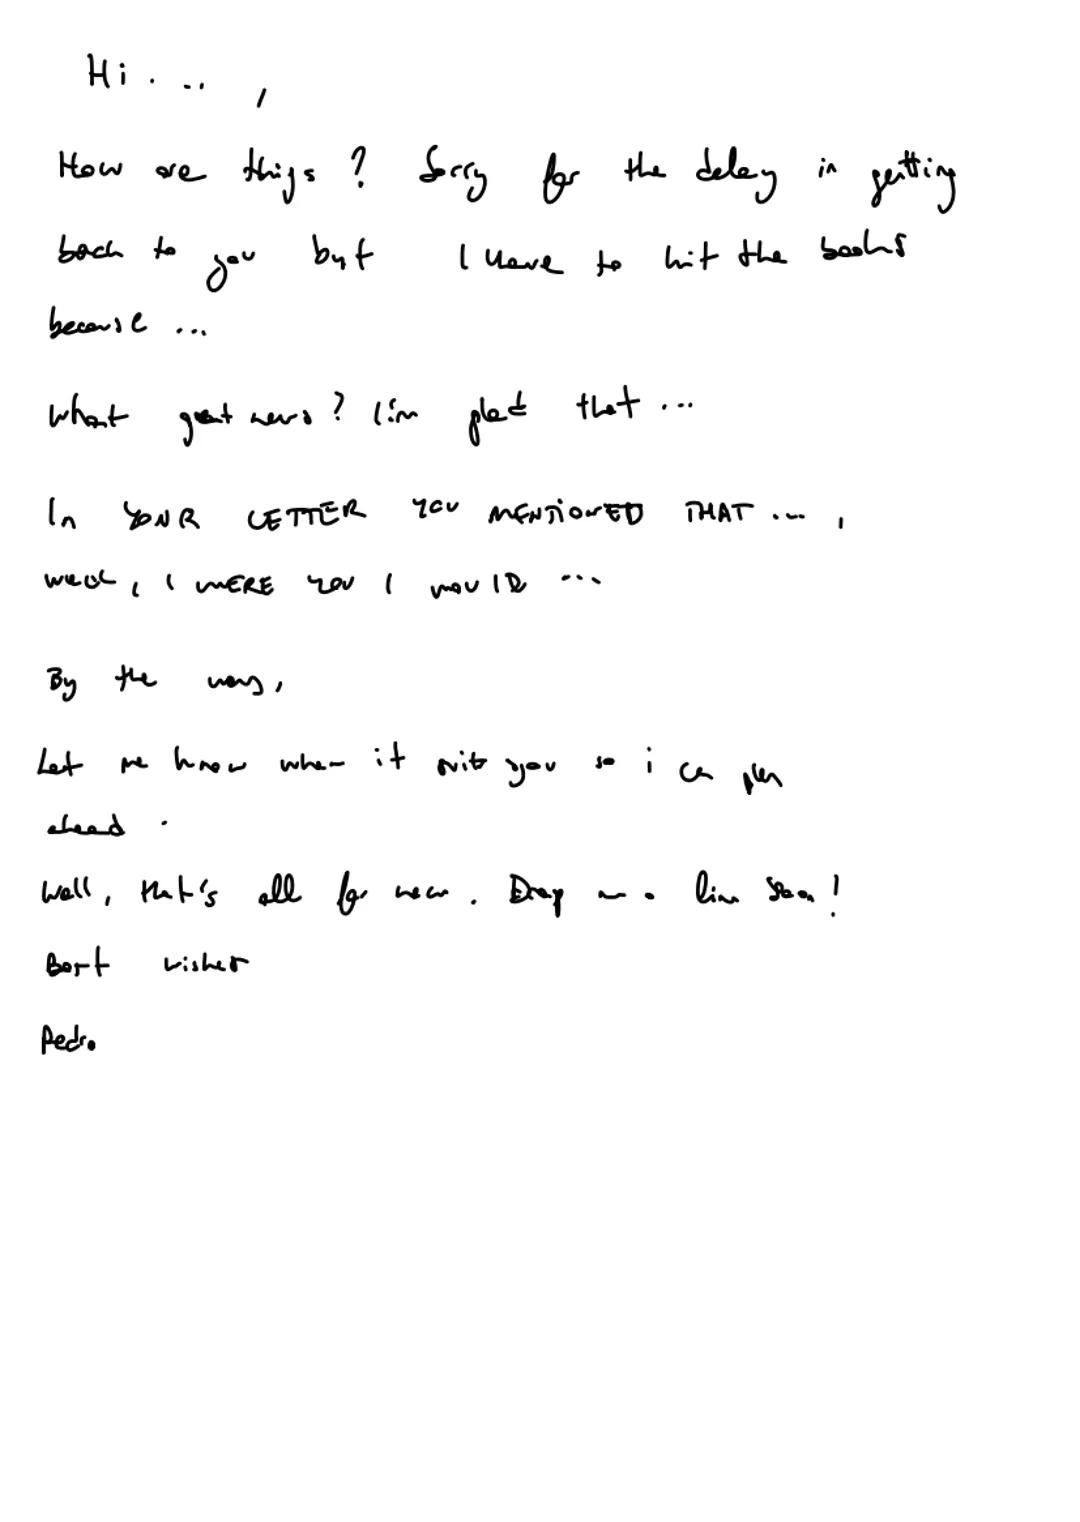 Hi . .. ,
How are things ? Sorry for the delay in getting
back to you but I have to hit the books
because ...
What great news ? I'm glad that ...
In YOUR LETTER YOU MENTIONED THAT ... ,
well, I WERE YOU I WOULD ...
By the way,
Let me know when it suits you so i can plan
ahead .
Well, that's all for now . Drop me a line soon !
Best wishes
Pedro